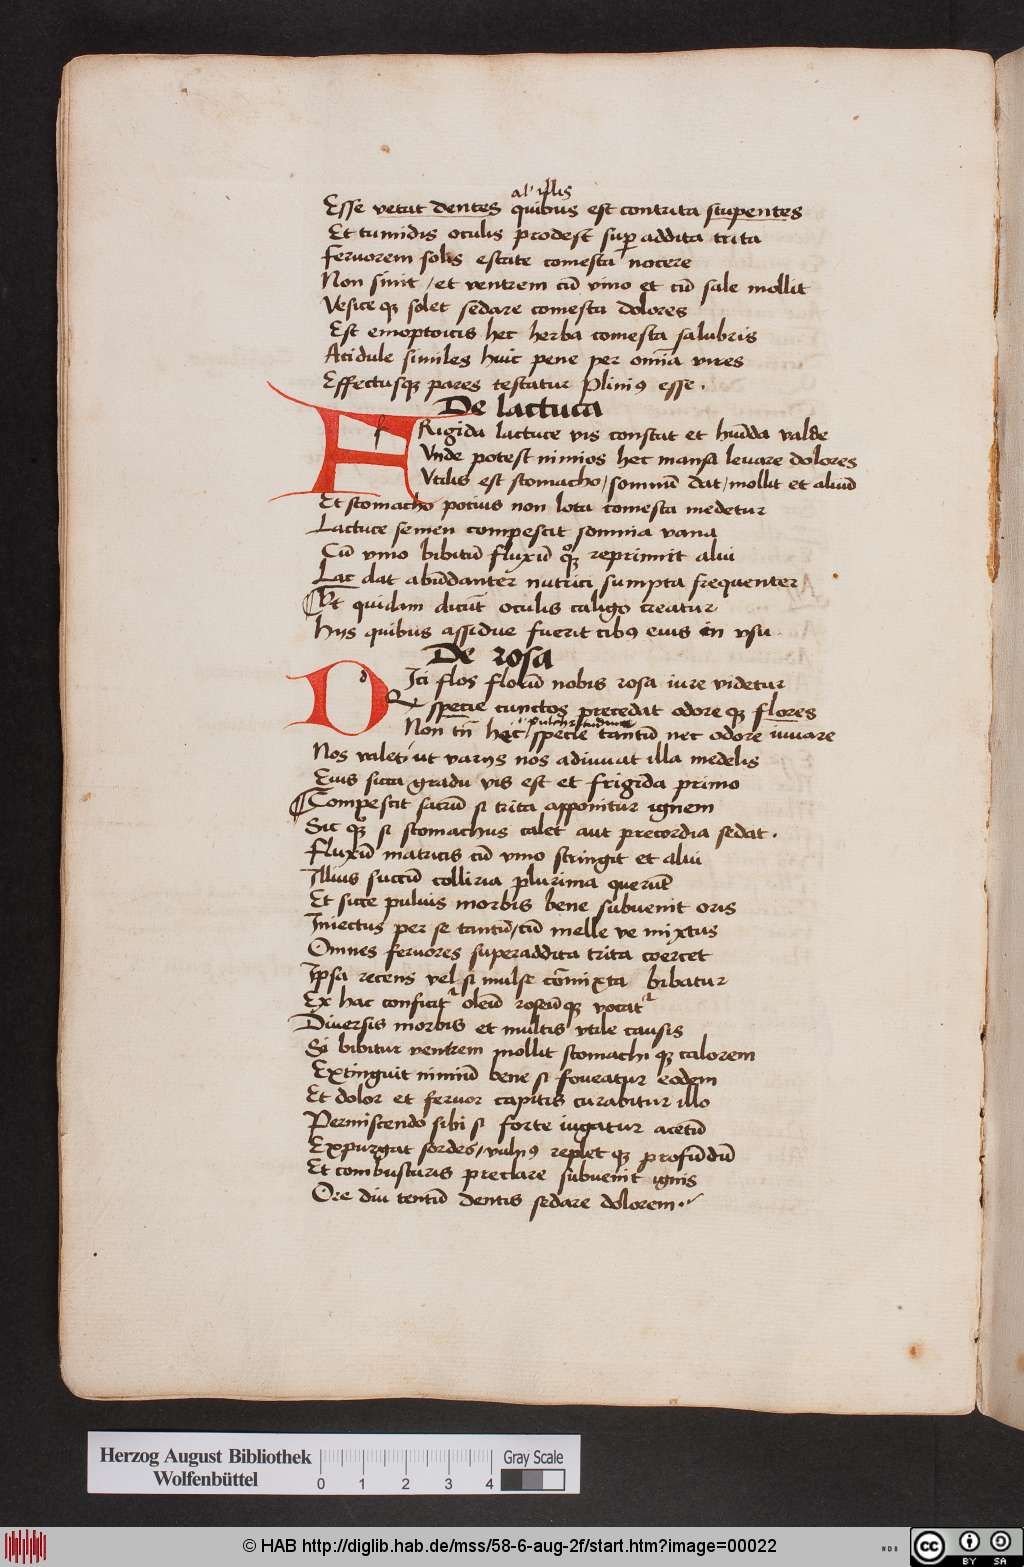 al' illis
Esse vetat dentes quibus est contrita stupentes
Et tumidis oculis prodest sup̱ addita trita
feruorem solis estate comesta nocere
Non sinit / et ventrem cū vino et cū sale mollit
Vesiceqꝫ solet sedare comesta dolores
Est emoptoicis hec herba comesta salubris
Acidule similes huic pene per om̄ia vires
Effectusqꝫ pares testatur Pliniꝯ esse .
De lactuca
f
FRigida lactuce vis constat et hūida valde
Vnde potest nimios hec mansa leuare dolores
Vtilis est stomacho / somnū dat / mollit et aluū
Et stomacho potius non lota comesta medetur
Lactuce semen compescit somnia vana
Cū vino bibitū fluxū qͦqꝫ reprimit alui
Lac dat abūdanter nutrici sumpta frequenter
Et quidam dicūt oculis caligo creatur
Hijs quibus assidue fuerit cibꝯ eius in vsu
De rosa
d
DIci flos florū nobis rosa iure videtur
Q specie cunctos precedat odoreqꝫ flores
i. pulchritudine
Non tn̄ hec / specie tantū nec odore iuuare
Nos valet / ut varijs nos adiuuat illa medelis
Eius sicca gradu vis est et frigida primo
Compescit sacrū si trita apponitur ignem
Sic qꝫ si stomachus calet aut precordia sedat .
Fluxū matricis cū vino stringit et alui
Illius succū colliria plurima querūt
Et sicce puluis morbis bene subuenit oris
Iniectus per se tantū / cū melle ve mixtus
Omnes feruores superaddita trita coercet
Ipsa recens vel si mulse cōmixta bibatur
Ex hac conficitᷣ oleū roseūqꝫ vocatᷣ
Diuersis morbis et multis vtile causis
Si bibitur ventrem mollit stomachiqꝫ calorem
Extinguit nimiū bene si foueatur eodem
Et dolor et feruor capitis curabitur illo
Permiscendo sibi si forte iugatur acetū
Expurgat sordes / vulnꝯ repletqꝫ profūdū
Et combusturis preclare subuenit ignis
Ore diu tentū dentis sedare dolorem .
Herzog August Bibliothek
Wolfenbüttel
0 1 2 3 4
Gray Scale
© HAB http://diglib.hab.de/mss/58-6-aug-2f/start.htm?image=00022
cc BY SA